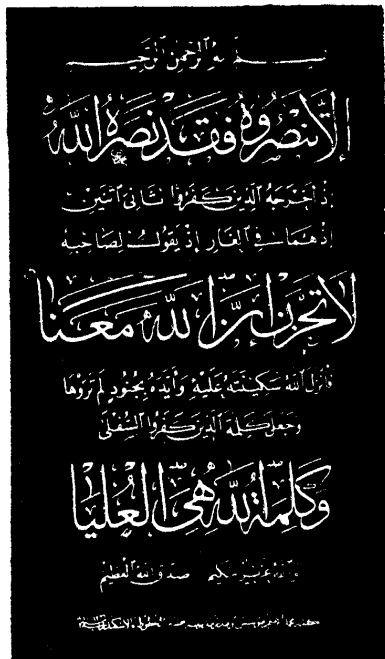 بسم الله الرحمن الرحيم
إلا تنصروه فقد نصره الله
إذ أخرجه الذين كفروا ثاني اثنين
إذ هما في الغار إذ يقول لصاحبه
لا تحزن إن الله معنا
فأنزل الله سكينته عليه وأيده بجنود لم تروها
وجعل كلمة الذين كفروا السفلى
وكلمة الله هي العليا
والله عزيز حكيم صدق الله العظيم